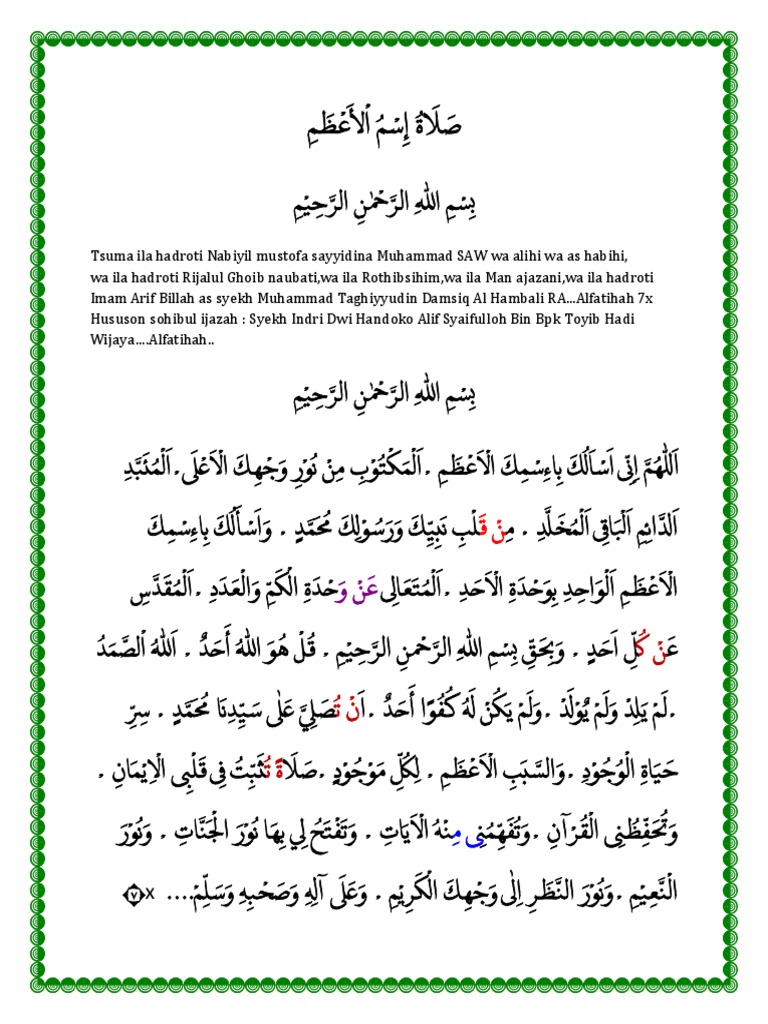 صَلَاةُ إِسْمُ اْلأَعْظَمِ
بِسْمِ اللهِ الرَّحْمٰنِ الرَّحِيْمِ
Tsuma ila hadroti Nabiyil mustofa sayyidina Muhammad SAW wa alihi wa as habihi,
wa ila hadroti Rijalul Ghoib naubati,wa ila Rothibsihim,wa ila Man ajazani,wa ila hadroti
Imam Arif Billah as syekh Muhammad Taghiyyudin Damsiq Al Hambali RA...Alfatihah 7x
Hususon sohibul ijazah : Syekh Indri Dwi Handoko Alif Syaifulloh Bin Bpk Toyib Hadi
Wijaya....Alfatihah..
بِسْمِ اللهِ الرَّحْمٰنِ الرَّحِيْمِ
اَللّٰهُمَّ إِنِّى اَسْاَلُكَ بِاءِسْمِكَ الْاَعْظَمِ .اَلْمَكْتُوْبِ مِنْ نُوْرِ وَجْهِكَ الْاَعْلَى.اَلْمُئَبَّدِ
اَلدَّائِمِ اَلْبَاقِى اَلْمُخَلَّدِ . مِنْ قَلْبِ نَبِيِّكَ وَرَسُوْلِكَ مُحَمَّدٍ . وَاَسْأَلُكَ بِاءِسْمِكَ
الْاَعْظَمِ اَلْوَاحِدِ بِوَحْدَةِ الْاَحَدِ .اَلْمُتَعَالِى عَنْ وَحْدَةِ الْكَمِّ وَالْعَدَدِ .اَلْمُقَدَّسِ
عَنْ كُلِّ اَحَدٍ . وَبِحَقِّ بِسْمِ اللهِ الرَّحْمنِ الرَّحِيْمِ . قُلْ هُوَ اللهُ أَحَدٌ . اَللهُ اْلصَّمَدُ
.لَمْ يَلِدْ وَلَمْ يُوْلَدْ .وَلَمْ يَكُنْ لَهُ كُفُوًا أَحَدٌ .اَنْ تُصَلِيَّ عَلٰى سَيِّدِنَا مُحَمَّدٍ . سِرِّ
حَيَاةِ الْوُجُوْدِ .وَالسَّبَبِ الْاَعْظَمِ . لِكُلِّ مَوْجُوْدٍ .صَلَاةً تُثَبِّتُ فِى قَلْبِى الْاِيْمَانِ .
وَتُحَفِّظُنِى الْقُرْآنِ .وَتُفَهِّمُنِى مِنْهُ الْاَيَاتِ . وَتَفْتَحُ لِي بِهَا نُوْرَ الْجَنَّاتِ . وَنُوْرَ
النَّعِيْمِ .وَنُوْرَ النَّظَرِ اِلٰى وَجْهِكَ الْكَرِيْمِ . وَعَلَى آلِهِ وَصَحْبِهِ وَسَلِّمْ.... x٧